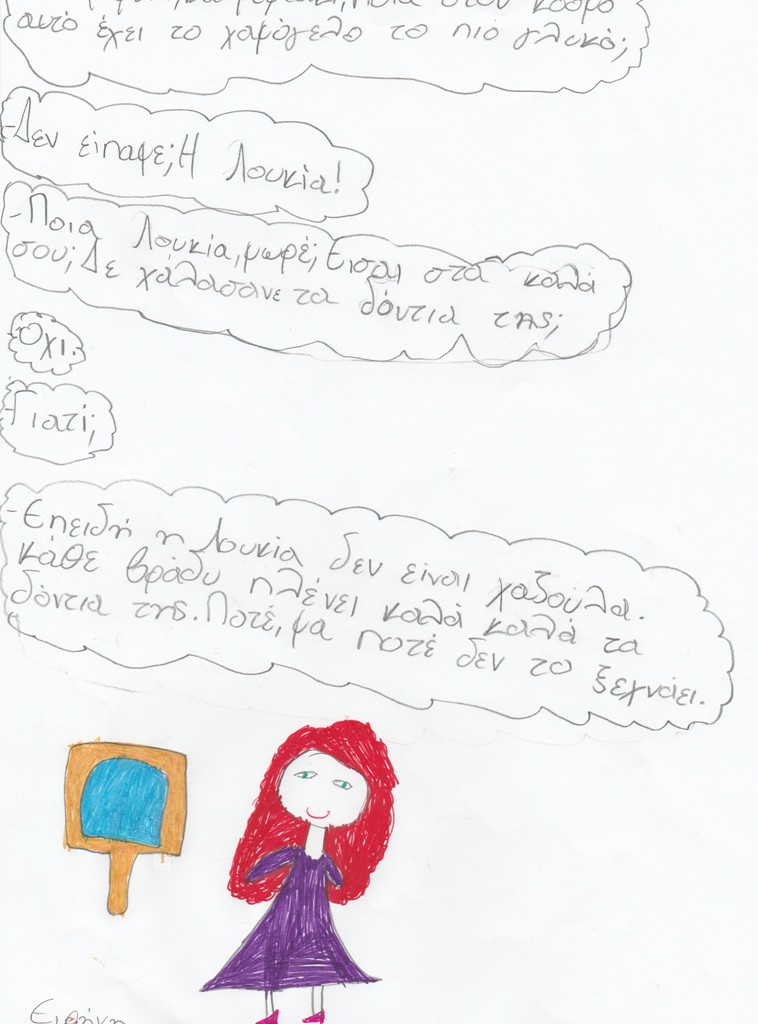 ποια στον κόσμο
αυτό έχει το χαμόγελο το πιό γλυκό;
-Δεν είπαμε; Η Λουκία!
-Ποια Λουκία, μωρέ; Είσαι στα καλά
σου; Δε χάλασανε τα δόντια της;
Όχι.
-Γιατί;
-Επειδή η Λουκία δεν είναι χαζούλα.
κάθε βράδυ πλένει καλά καλά τα
δόντια της. Ποτέ, μα ποτέ δεν το ξεχνάει.
Ειρήνη